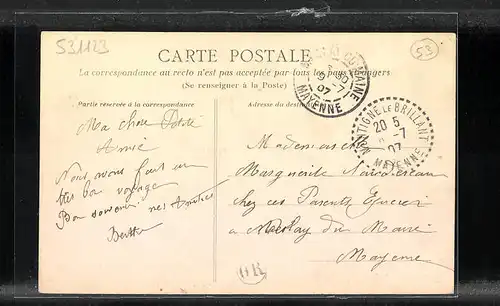 531123
53
CARTE POSTALE
La correspondance au recto n'est pas acceptée par tous les pays étrangers
(Se renseigner à la Poste)
Partie réservée à la correspondance
Adresse du destinataire
DOMAINE
9-7
07
MAYENNE
MONTIGNE LE BRILLANT
20 5
-7
07
MAYENNE
Ma chère Petite
Amie
Nous avons fait un
très bon voyage
Bon souvenir nos Amitiés
Berthe
Mademoiselle
Marguerite
chez ces Parents Epicier
a Meslay du Maine
Mayenne
OR